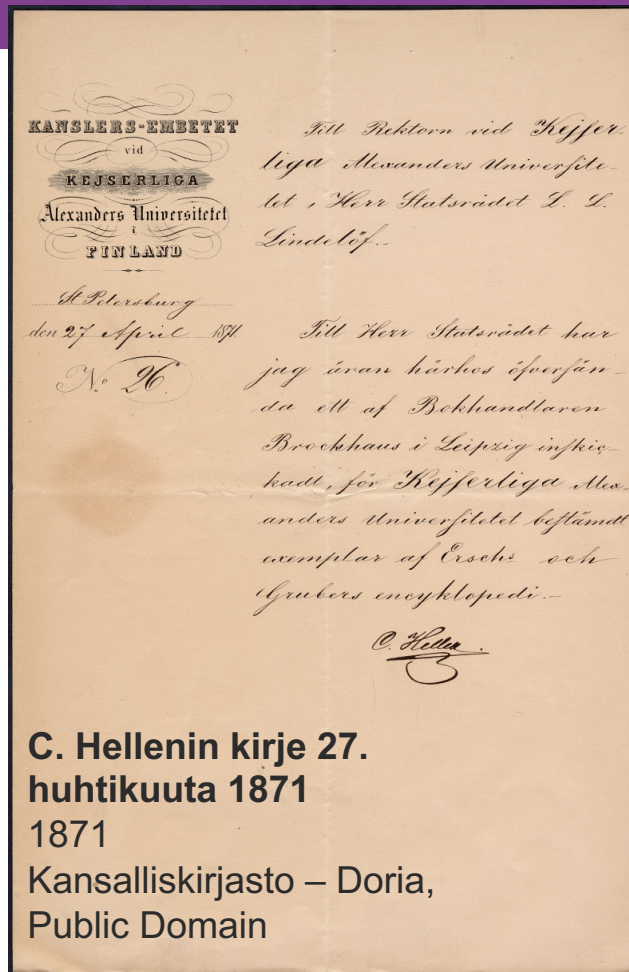 KANSLERS-EMBETET
vid
KEJSERLIGA
Alexanders Universitetet
i
FINLAND
St Petersburg
den 27 April 1871.
No 26.
Till Rektorn vid Kejser-
liga Alexanders Universite-
tet, Herr Statsrådet L. L.
Lindelöf.-
Till Herr Statsrådet har
jag äran härhos öfversän-
da ett af Bokhandlaren
Brockhaus i Leipzig inskic-
kadt, för Kejserliga Alex-
anders Universitetet bestämdt
exemplar af Ersch's och
Grubers encyklopedi.-
C. Hellen.
C. Hellenin kirje 27.
huhtikuuta 1871
1871
Kansalliskirjasto – Doria,
Public Domain